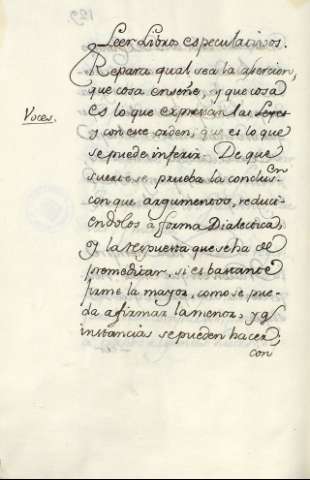 Leer Libros especulativos.
Repara qual sea la asercion,
que cosa enseñe, y que cosa
Voces.
es lo que expresan las Leyes
y con ese orden, que es lo que
se puede inferir. De que
suerte se prueba la conclus-
en
con que argumentos, reduci-
endolos a forma Dialectica,
y la respuesta que se ha de
premeditar, si es bastante
firme la mayor, como se pue-
da afirmar la menor, y q
instancias se pueden hacer,
con